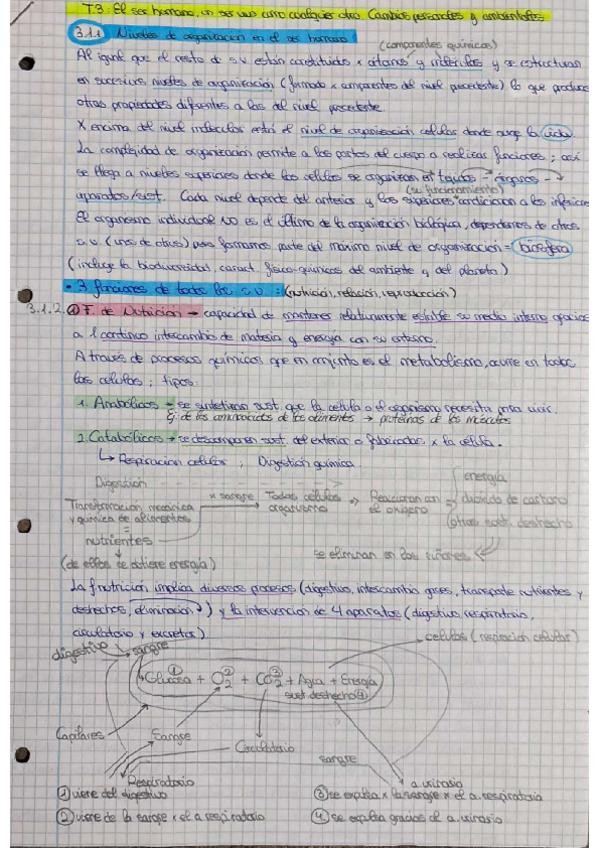 T3: El ser humano, un ser vivo como cualquier otro. Cambios personales y ambientales
3.1.1 Niveles de organización en el ser humano
(componentes químicos)
Al igual que el resto de s.v están constituidos x átomos y moléculas y se estructuran
en sucesivos niveles de organización (formado x componentes del nivel precedente) lo que produce
otras propiedades diferentes a las del nivel precedente.
X encima del nivel moléculas está el nivel de organización celular donde surge la vida
La complejidad de organización permite a las partes del cuerpo a realizar funciones; así
se llega a niveles superiores donde las células se organizan en tejidos → órganos →
aparatos/sist. Cada nivel depende del anterior y los superiores condicionan a los inferiores
(su funcionamiento)
El organismo individual NO es el último de la organización biológica, dependemos de otros
s.v. (unos de otros) pero formamos parte del máximo nivel de organización = biosfera
(incluye la biodiversidad, caract. físico-químicas del ambiente y del planeta)
• 3 funciones de todos los s.v.: (nutrición, relación, reproducción)
3.1.2. ① F. de Nutrición → capacidad de mantener relativamente estable su medio interno gracias
a 1 continuo intercambio de materia y energía con su entorno.
A través de procesos químicos que en conjunto es el metabolismo, ocurre en todas
las células; tipos:
1. Anabólicos → se sintetizan sust. que la célula o el organismo necesita para vivir.
Ej: de los aminoácidos de los alimentos → proteínas de los músculos
2. Catabólicos → se descomponen sust. del exterior o fabricadas x la célula.
↳ Respiración celular, Digestión química.
Digestión
Transformación mecánica
y química de alimentos
nutrientes
(de ellos se obtiene energía)
x sangre
Todas células
organismo
→ Reaccionan con
el oxígeno
energía
dióxido de carbono
(otras sust. desecho
se eliminan en los riñones
La f.nutrición implica diversos procesos (digestivo, intercambio gases, transporte nutrientes y
deshechos, eliminación ) y la intervención de 4 aparatos (digestivo, respiratorio,
circulatorio y excretor)
digestivo
sangre
células (respiración celular)
① ② ③
Glucosa + O₂ + CO₂ + Agua + Energía
sust deshecho ④
Capilares
Sangre
Circulatorio
sangre
Respiratorio
a urinario
① viene del digestivo
② viene de la sangre x el a respiratorio
③ se expulsa x la sangre x el a. respiratorio
④ se expulsa gracias al a. urinario